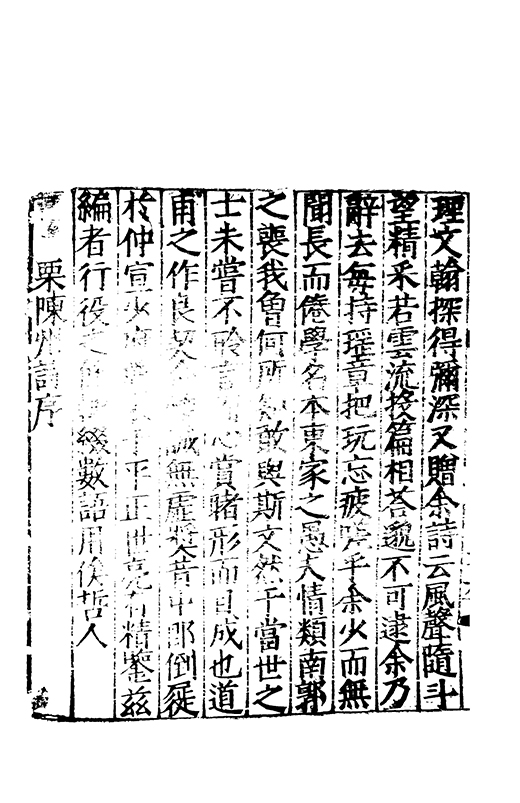 理文翰探得彌深又贈余詩云風聲隨斗
望精采若雲流投篇相荅邈不可逮余乃
辭去每持瑶章把玩忘疲嗟乎余少而無
聞長而倦學名本東家之愚夫情類南郭
之喪我曾何所知敢與斯文然于當世之
士未嘗不聆音而心賞睹形而目成也道
甫之作良契 誠無虛奬昔中郎倒屣
於仲宣少 平正世竞有精鑒兹
編者行役之 綴數語用俟哲人
栗陳州詩序